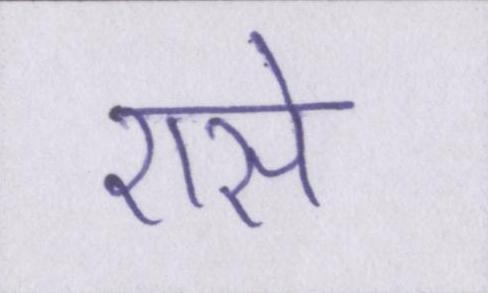 रासे